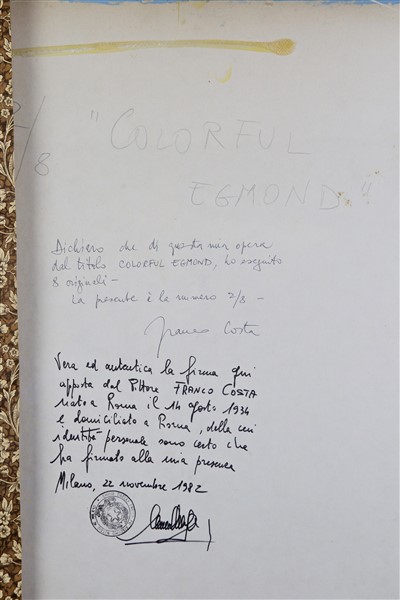 2/8
"COLORFUL
EGMOND"
Dichiaro che di questa mia opera
dal titolo COLORFUL EGMOND, ho eseguito
8 originali –
La presente è la numero 2/8 –
Franco Costa
Vera ed autentica la firma qui
apposta dal Pittore FRANCO COSTA
nato a Roma il 14 agosto 1934
e domiciliato a Roma, della cui
identità personale sono certo che
ha firmato alla mia presenza
Milano, 22 novembre 1982